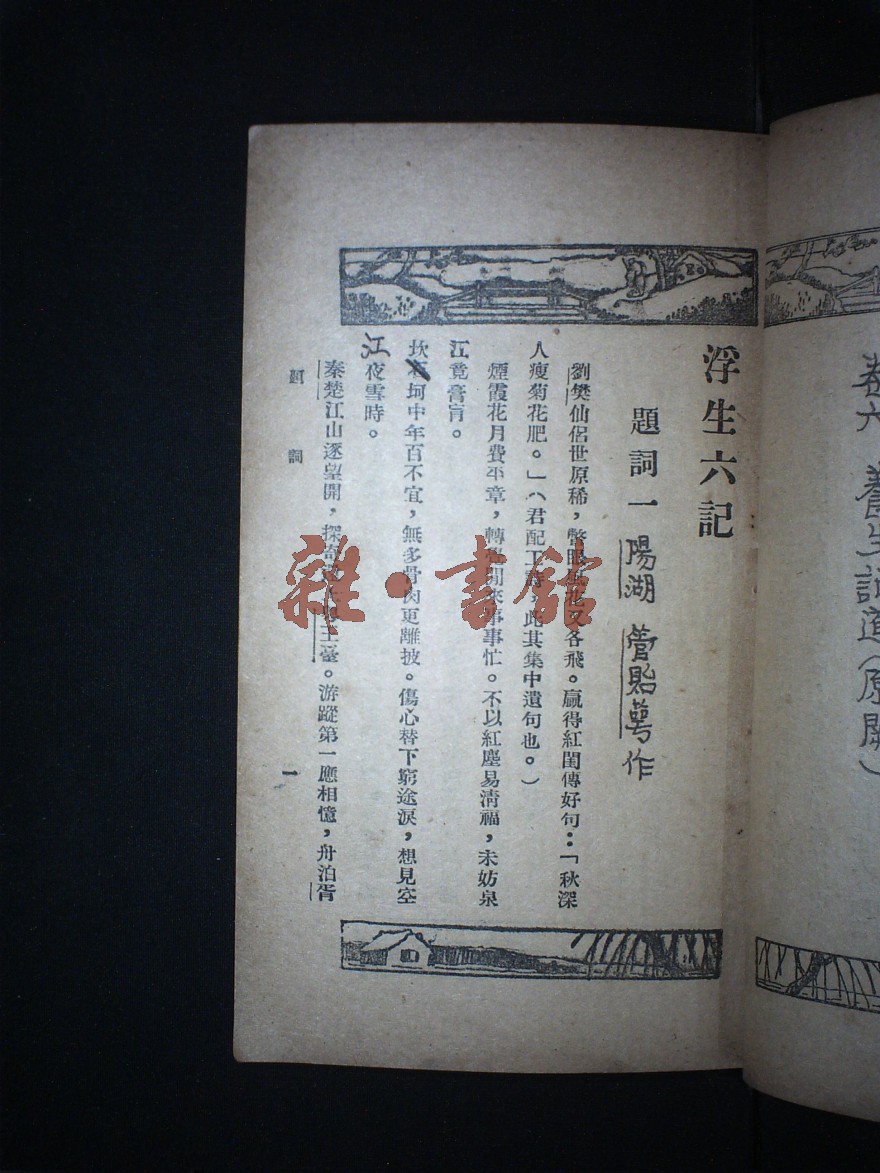 卷六 養生記道（原闕）
浮生六記
題詞一 陽湖 管貽萼作
劉樊仙侶世原稀，瞥眼花又各飛。贏得紅閨傳好句：「秋深
人瘦菊花肥。」（君配工詩，此其集中遺句也。）
煙霞花月費平章，轉覺閒來事事忙。不以紅塵易清福，未妨泉
江竟膏肓。
坎坷中年百不宜，無多骨肉更離披。傷心替下窮途淚，想見空
江夜雪時。
秦楚江山逐望開，探奇王臺。游蹤第一應相憶，舟泊胥
題詞
一
雜·書館